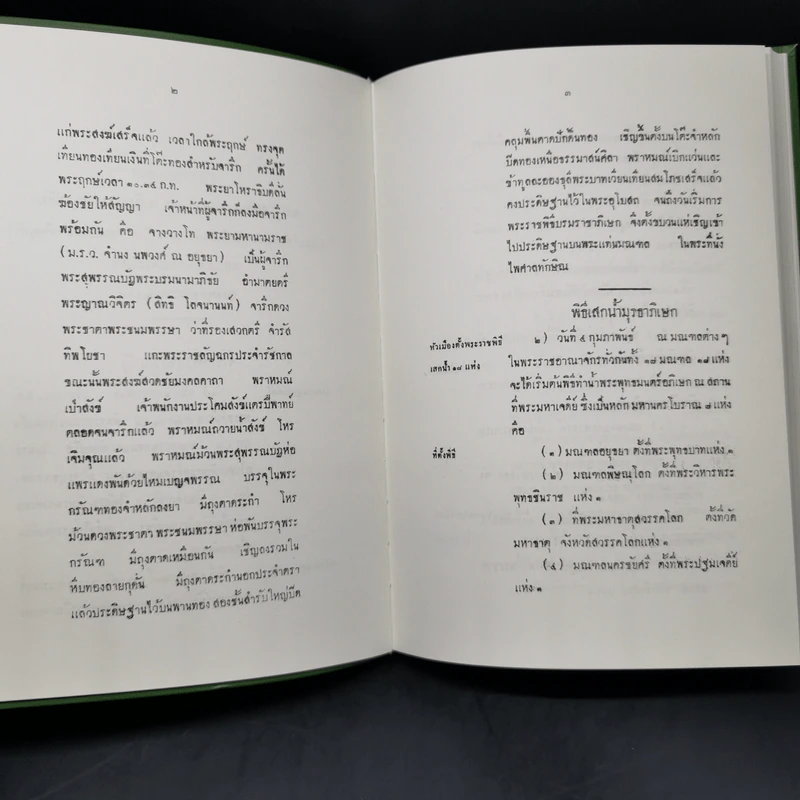 ๒
แก่พระสงฆ์เสร็จแล้ว เวลาใกล้พระฤกษ์ ทรงจุด
เทียนทองเทียนเงินที่โต๊ะทองสำหรับจาริก ครั้นได้
พระฤกษ์เวลา ๑๐.๓๕ ก.ท. พระยาโหราธิบดีลั่น
ฆ้องชัยให้สัญญา เจ้าหน้าที่ผู้จาริกก็ลงมือจาริก
พร้อมกัน คือ จางวางโท พระยามหานามราช
(ม.ร.ว. จำนง นพวงศ์ ณ อยุธยา) เป็นผู้จาริก
พระสุพรรณบัฏพระบรมนามาภิธัย อำมาตยตรี
พระญาณวิจิตร (สิทธิ โลจนานนท์) จาริกดวง
พระชาตาพระชนมพรรษา ว่าที่รองเสวกตรี จำรัส
ทิพโยชา แกะพระราชลัญฉกรประจำรัชกาล
ขณะนั้นพระสงฆ์สวดชัยมงคลคาถา พราหมณ์
เป่าสังข์ เจ้าพนักงานประโคมสังข์แตรปี่พาทย์
ตลอดจนจาริกแล้ว พราหมณ์ถวายน้ำสังข์ โหร
เจิมจุณแล้ว พราหมณ์ม้วนพระสุพรรณบัฏห่อ
แพรแดงพันด้วยไหมเบญจพรรณ บรรจุในพระ
กรัณฑทองจำหลักลงยา มีถุงตาดระกำ โหร
ม้วนดวงพระชาตา พระชนมพรรษา ห่อพันบรรจุพระ
กรัณฑ มีถุงตาดเหมือนกัน เชิญลงรวมใน
หีบทองถายกุดั่น มีถุงตาดระกำนอกประจำตรา
แล้วประดิษฐานไว้บนพานทอง สองชั้นสำรับใหญ่ปิด
๓
คลุมพื้นตาดปักดิ้นทอง เชิญขึ้นตั้งบนโต๊ะจำหลัก
ปิดทองเหนือธรรมาสน์ศิลา พราหมณ์เบิกแว่นและ
ข้าทูลละอองธุลีพระบาทเวียนเทียนสมโภชเสร็จแล้ว
คงประดิษฐานไว้ในพระอุโบสถ จนถึงวันเริ่มการ
พระราชพิธีบรมราชาภิเษก จึงตั้งขบวนแห่เชิญเข้า
ไปประดิษฐานบนพระแท่นมณฑล ในพระที่นั่ง
ไพศาลทักษิณ
พิธีเสกน้ำมุรธาภิเษก
หัวเมืองตั้งพระราชพิธี
เสกน้ำ ๑๘ แห่ง
๒) วันที่ ๕ กุมภาพันธ์ ณ มณฑลต่าง ๆ
ในพระราชอาณาจักรทั่วกันทั้ง ๑๘ มณฑล ๑๗ แห่ง
จะได้เริ่มต้นพิธีทำน้ำพระพุทธมนตร์อภิเษก ณ สถาน
ที่พระมหาเจดีย์ ซึ่งเป็นหลัก มหานครโบราณ ๗ แห่ง
คือ
ที่ตั้งพิธี
(๑) มณฑลอยุธยา ตั้งที่พระพุทธบาทแห่ง ๑
(๒) มณฑลพิษณุโลก ตั้งที่พระวิหารพระ
พุทธชินราช แห่ง ๑
(๓) ที่พระมหาธาตุสวรรคโลก ตั้งที่วัด
มหาธาตุ จังหวัดสวรรคโลกแห่ง ๑
(๔) มณฑลนครชัยศรี ตั้งที่พระปฐมเจดีย์
แห่ง ๑